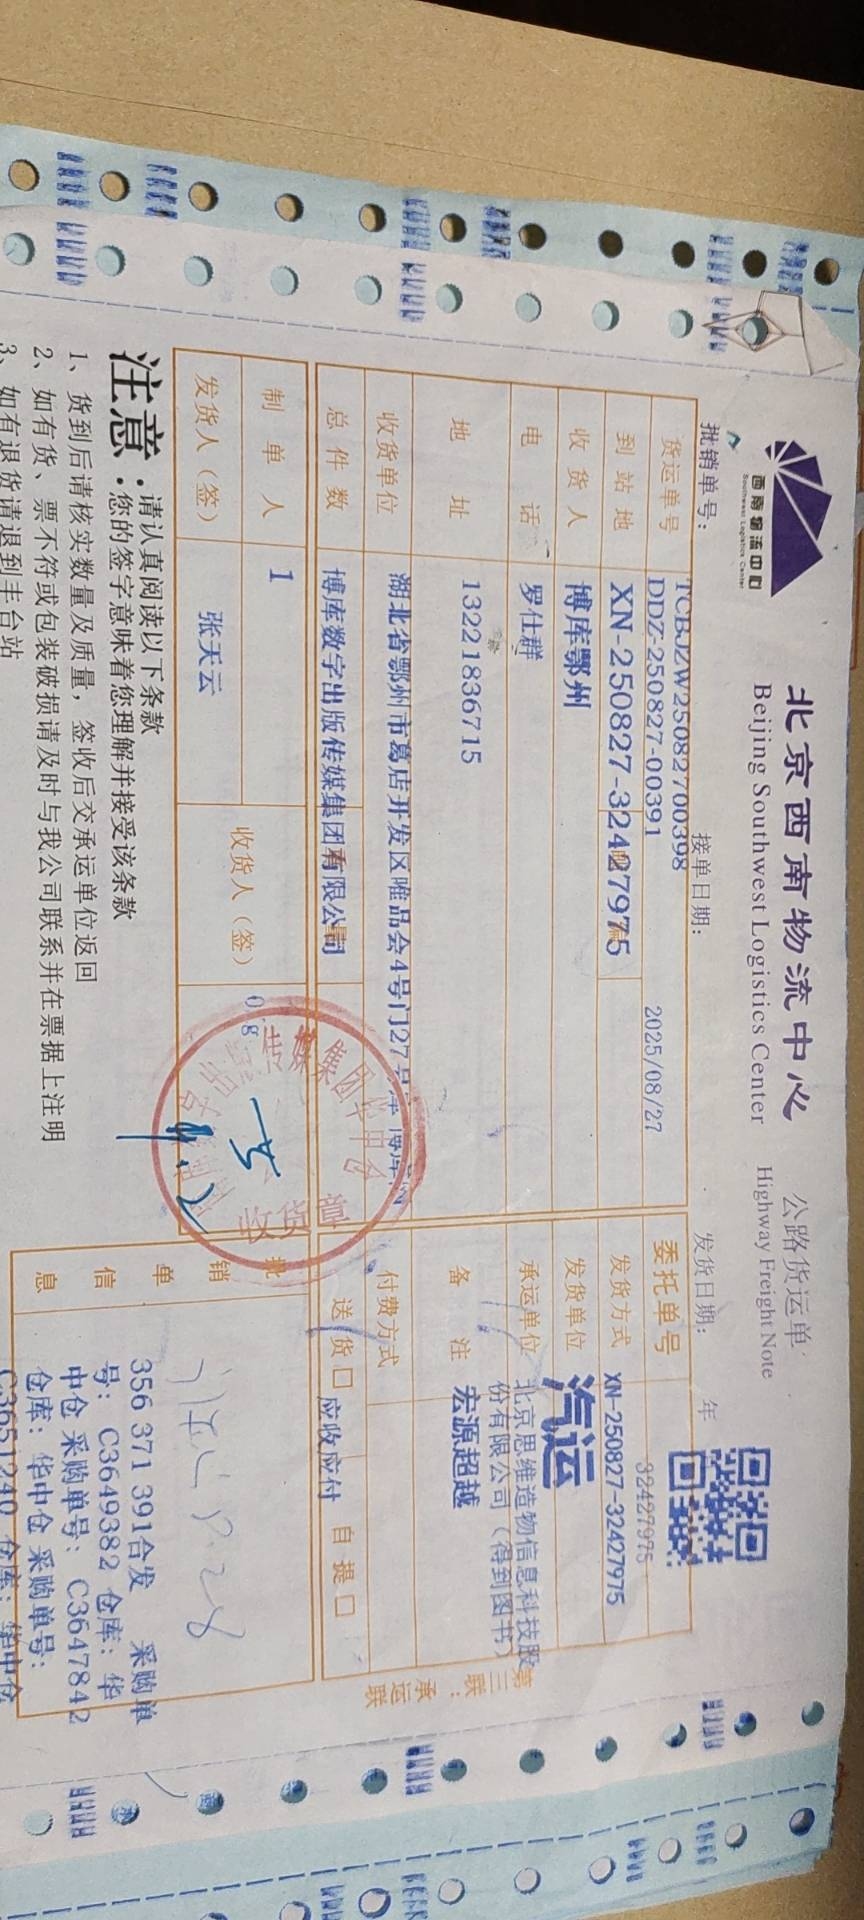 西南物流中心
Southwest Logistics Center
北京西南物流中心
公路货运单
Beijing Southwest Logistics Center
Highway Freight Note
批销单号:
接单日期:
发货日期:
年
TCBJZW25082700398
货运单号
DDZ-250827-00391
2025/08/27
委托单号
32427975
到站地
XN-250827-32427975
发货方式
XN-250827-32427975
收货人
博库鄂州
发货单位
汽运
电话
罗仕群
承运单位
北京思维造物信息科技股
份有限公司(得到图书)
地址
13221836715
备注
宏源超越
收货单位
湖北省鄂州市葛店开发区唯品会4号门27号库 博库
付费方式
总件数
博库数字出版传媒集团有限公司
送货□
应收应付
自提□
制单人
1
收货人(签)
发货人(签)
张天云
收货章
批销单信息
356 371 391合发 采购单
号: C3649382 仓库: 华
中仓 采购单号: C3647842
仓库: 华中仓 采购单号:
C3651240 仓库: 华中仓
第三联:承运联
注意:
请认真阅读以下条款
您的签字意味着您理解并接受该条款
1、货到后请核实数量及质量,签收后交承运单位返回
2、如有货、票不符或包装破损请及时与我公司联系并在票据上注明
3、如有退货请退到丰台站